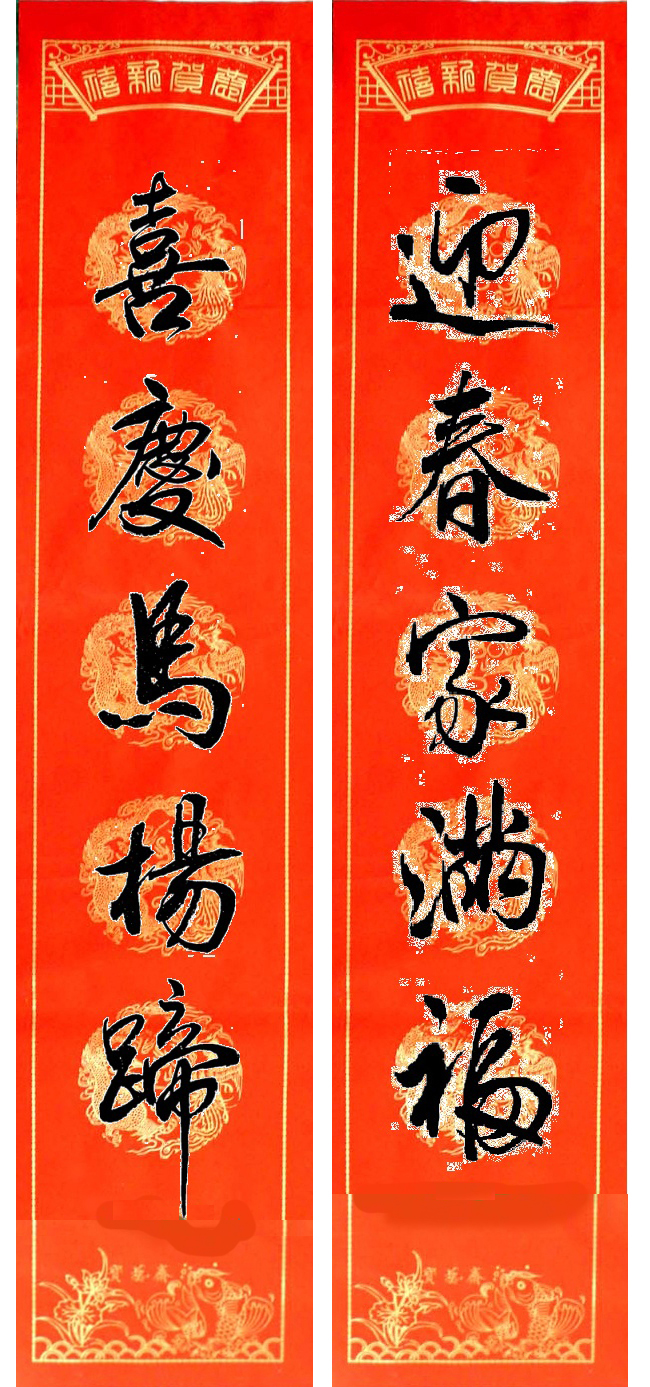 恭賀新禧
迎春家滿福
恭賀新禧
喜慶馬楊蹄